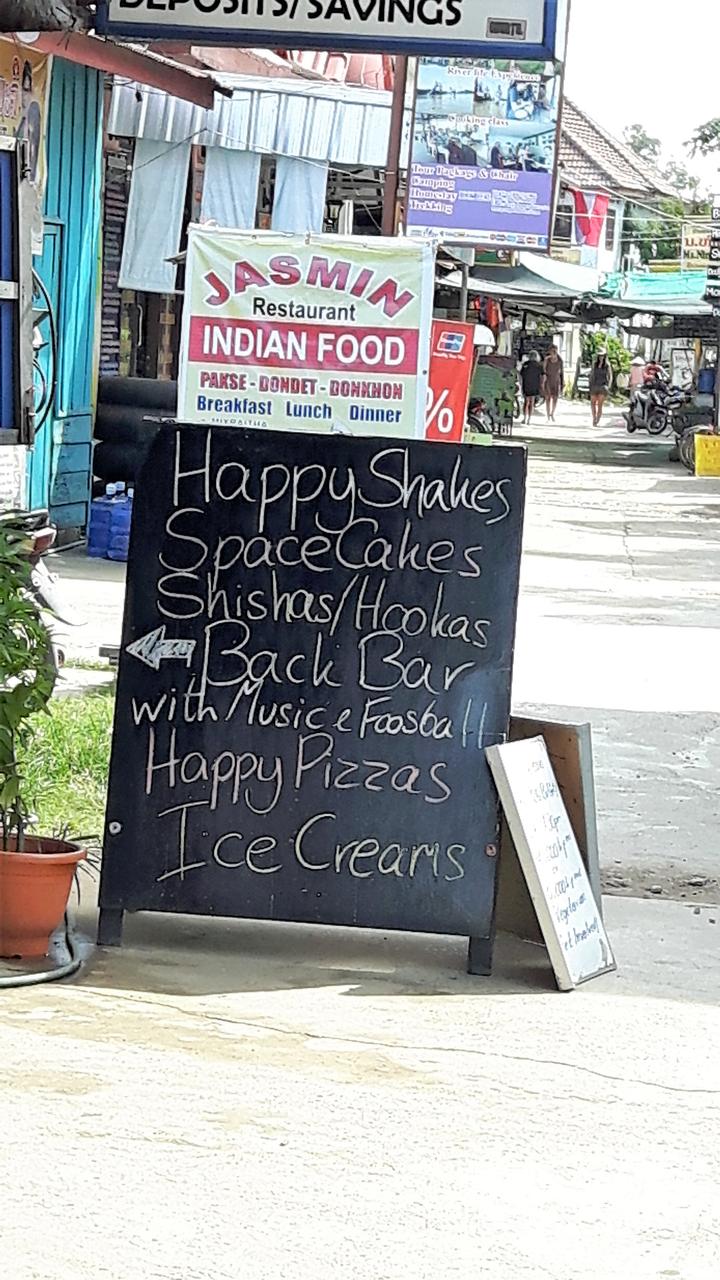 DEPOSITS/SAVINGS
River life Experience
Cooking class
Camping
Homestay
Trekking
JASMIN
Restaurant
INDIAN FOOD
PAKSE - DONDET - DONKHON
Breakfast Lunch Dinner
%
Happy Shakes
Space Cakes
Shishas/Hookas
Back Bar
with Music e Foosball
Happy Pizzas
Ice Creams